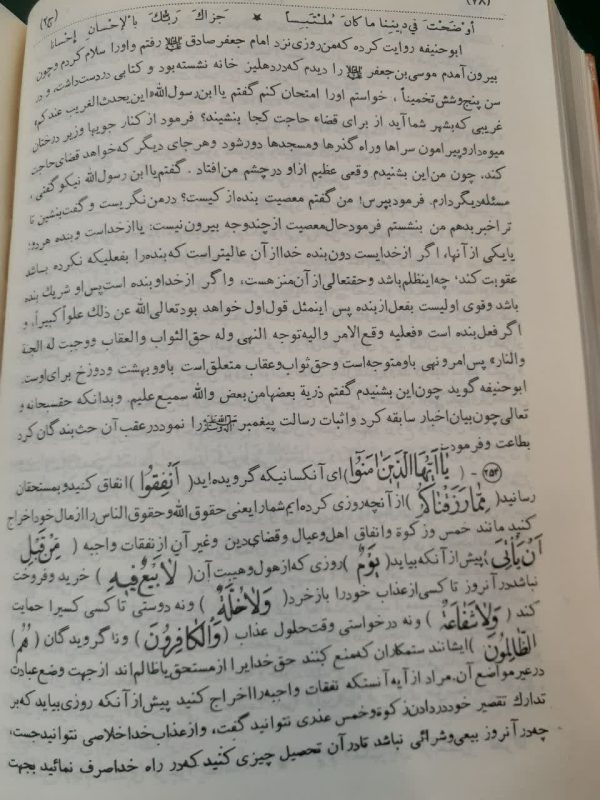 (۲۸)
أوضَحتَ فی دینِنا ما کانَ مُلتَبِساً * جَزاكَ رَبُّكَ بالإحسانِ إحساناً (ج۲)
ابوحنیفه روایت کرده که من روزی نزد امام جعفر صادق رفتم و اورا سلام کردم و چون
بیرون آمدم موسی بن جعفر را دیدم که در دهلیز خانه نشسته بود و کتابی در دست داشت، و در
سن پنج وشش تخمیناً، خواستم اورا امتحان کنم گفتم یا ابن رسول الله «این یحدث الغریب عندکم»
غریبی که بشهر شما آید از برای قضاء حاجت کجا بنشیند؟ فرمود از کنار جویها وزیر درختان
میوه دار و پیرامون سراها وراه گذرها و مسجدها دور شود وهر جای دیگر که خواهد قضای حاجت
کند، چون من این بشنیدم وقعی عظیم از او در چشم من افتاد. گفتم یا ابن رسول الله نیکو گفتی،
مسئله دیگر دارم. فرمود بپرس! من گفتم معصیت بنده از کیست؟ در من نگریست و گفت بنشین تا
تر اخبر بدهم من بنشستم فرمود حال معصیت از چند وجه بیرون نیست: یا از خداست و بنده هر دو؛
یا یکی از آنها، اگر از خدایست دون بنده خدا از آن عالیتر است که بنده را بفعلیکه نکرده باشد
عقوبت کند؛ چه اینظلم باشد و حقتعالی از آن منزهست، واگر از خدا و بنده است پس او شریك بنده
باشد وقوی اولیست بفعل از بنده پس اینمثل قول اول خواهد بود تعالی الله عن ذلك علواً کبیراً، و
اگر فعل بنده است «فعلیه وقع الامر والیه توجه النهی وله حق الثواب والعقاب ووجبت له الجنة
والنار» پس امر ونهی باو متوجه است و حق ثواب و عقاب متعلق است باو و بهشت ودوزخ برای اوست.
ابوحنیفه گوید چون این بشنیدم گفتم ذریة بعضها من بعض والله سمیع علیم. وبدانکه حقسبحانه و
تعالی چون بیان اخبار سابقه کرد و اثبات رسالت پیغمبر را نمود در عقب آن حث بندگان کرد
بطاعت و فرمود
۲۵۴ - (یا أیُّهَا الَّذینَ آمَنُوا) ای آنکسانیکه گرویده اید (أنفِقُوا) انفاق کنید و بمستحقان
رسانید (مِمّا رَزَقناکُم) از آنچه روزی کرده ایم شمارا یعنی حقوق الله وحقوق الناس را از مال خود اخراج
کنید مانند خمس وزکوة وانفاق اهل وعیال وقضای دین وغیر آن از نفقات واجبه (مِن قَبلِ
أن یَأتِیَ) پیش از آنکه بیاید (یَومٌ) روزی که از هول وهیبت آن (لا بَیعٌ فیهِ) خرید و فروخت
نباشد در آنروز تا کسی از عذاب خود را باز خرد (وَلا خُلَّةٌ) ونه دوستی تا کسی کسیرا حمایت
کند (وَلا شَفاعَةٌ) ونه درخواستی وقت حلول عذاب (وَالکافِرُونَ) و ناگرویدگان (هُمُ
الظّالِمُونَ) ایشانند ستمکاران که منع کنند حق خدایرا از مستحق یا ظالم اند از جهت وضع عبادت
در غیر مواضع آن. مراد از آیه آنستکه نفقات واجبه را اخراج کنید پیش از آنکه روزی بیاید که بر
تدارك تقصیر خود در دادن زکوة وخمس عذری نتوانید گفت، واز عذاب خدا خلاصی نتوانید جست،
چه در آنروز بیعی وشرائی نباشد تا در آن تحصیل چیزی کنید که در راه خدا صرف نمائید بجهت